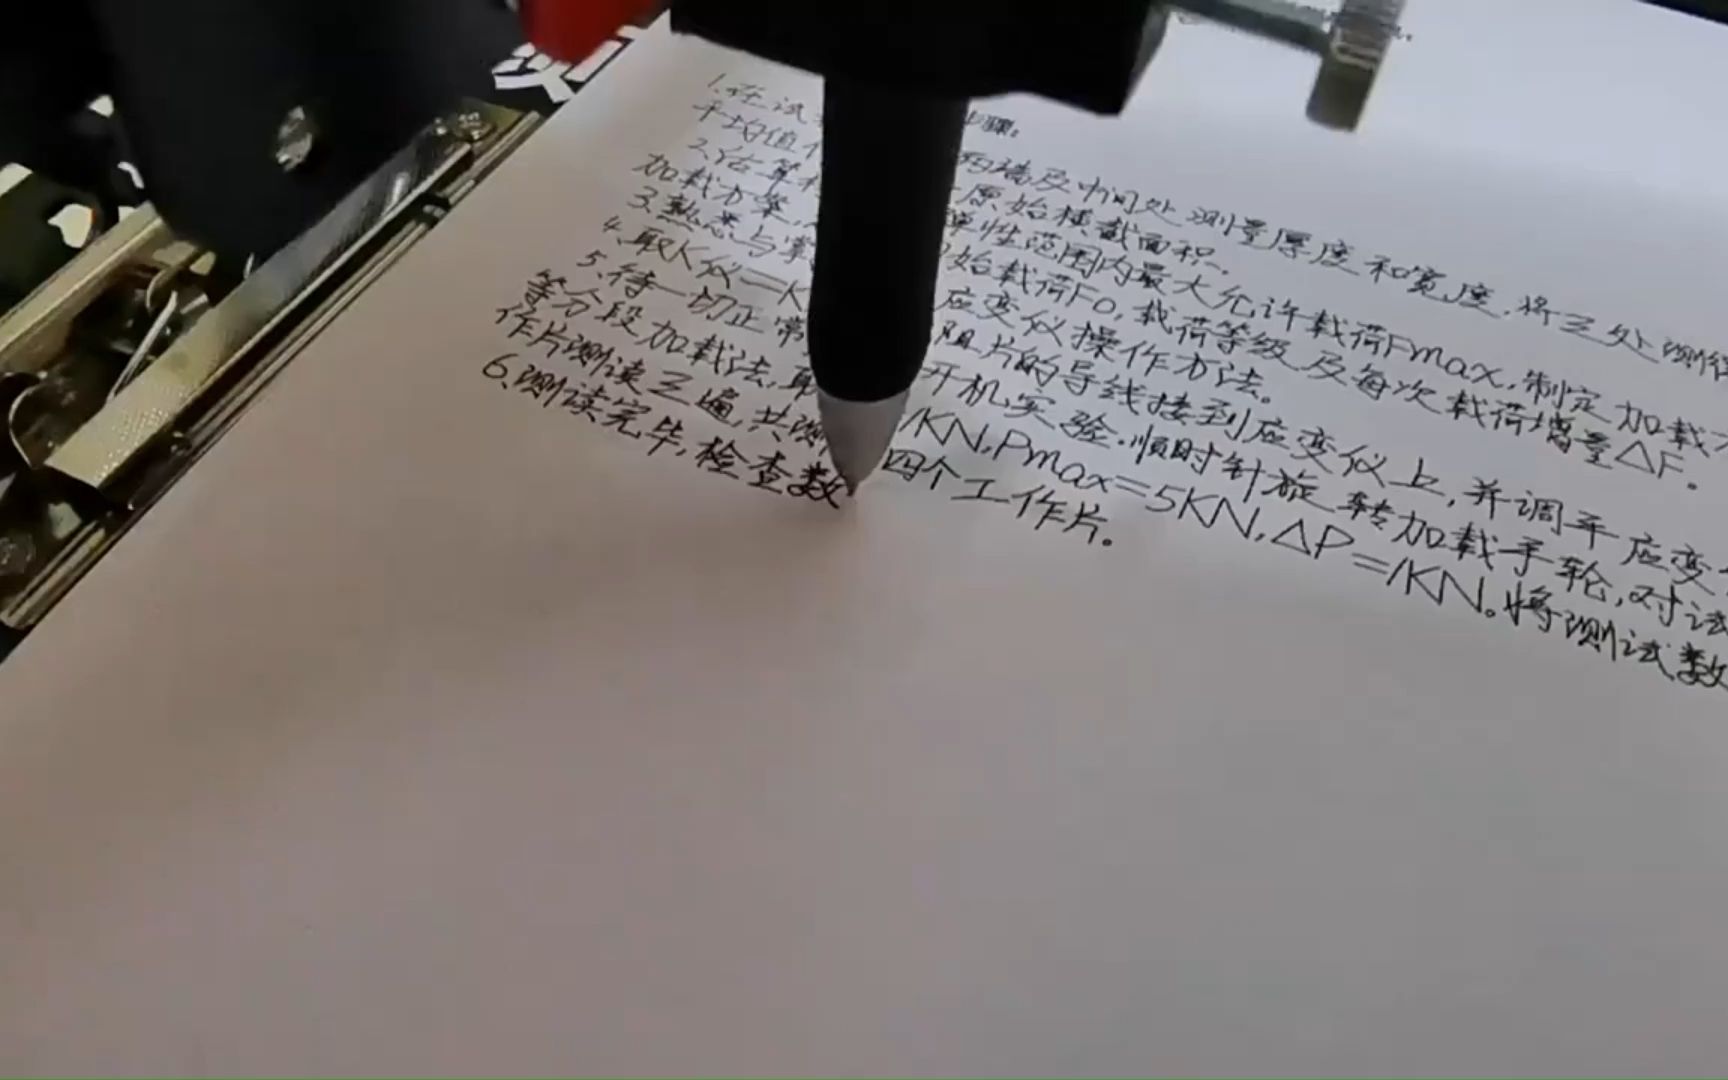 步骤:
1.在试 两端及中间处测量厚度和宽度,将三处测得
平均值 原始横截面积.
2.估算 弹性范围内最大允许载荷Fmax,制定加载
加载方案, 始载荷F0,载荷等级及每次载荷增量△F。
3.熟悉与掌 应变仪操作方法。
4.取K仪=K 阻片的导线接到应变仪上,并调平应变
5.待一切正常 开机实验.顺时针旋转加载手轮,对试
等分段加载法,取 1KN,Pmax=5KN,△P=1KN。将测试数
作片测读三遍,共测 四个工作片。
6.测读完毕,检查数